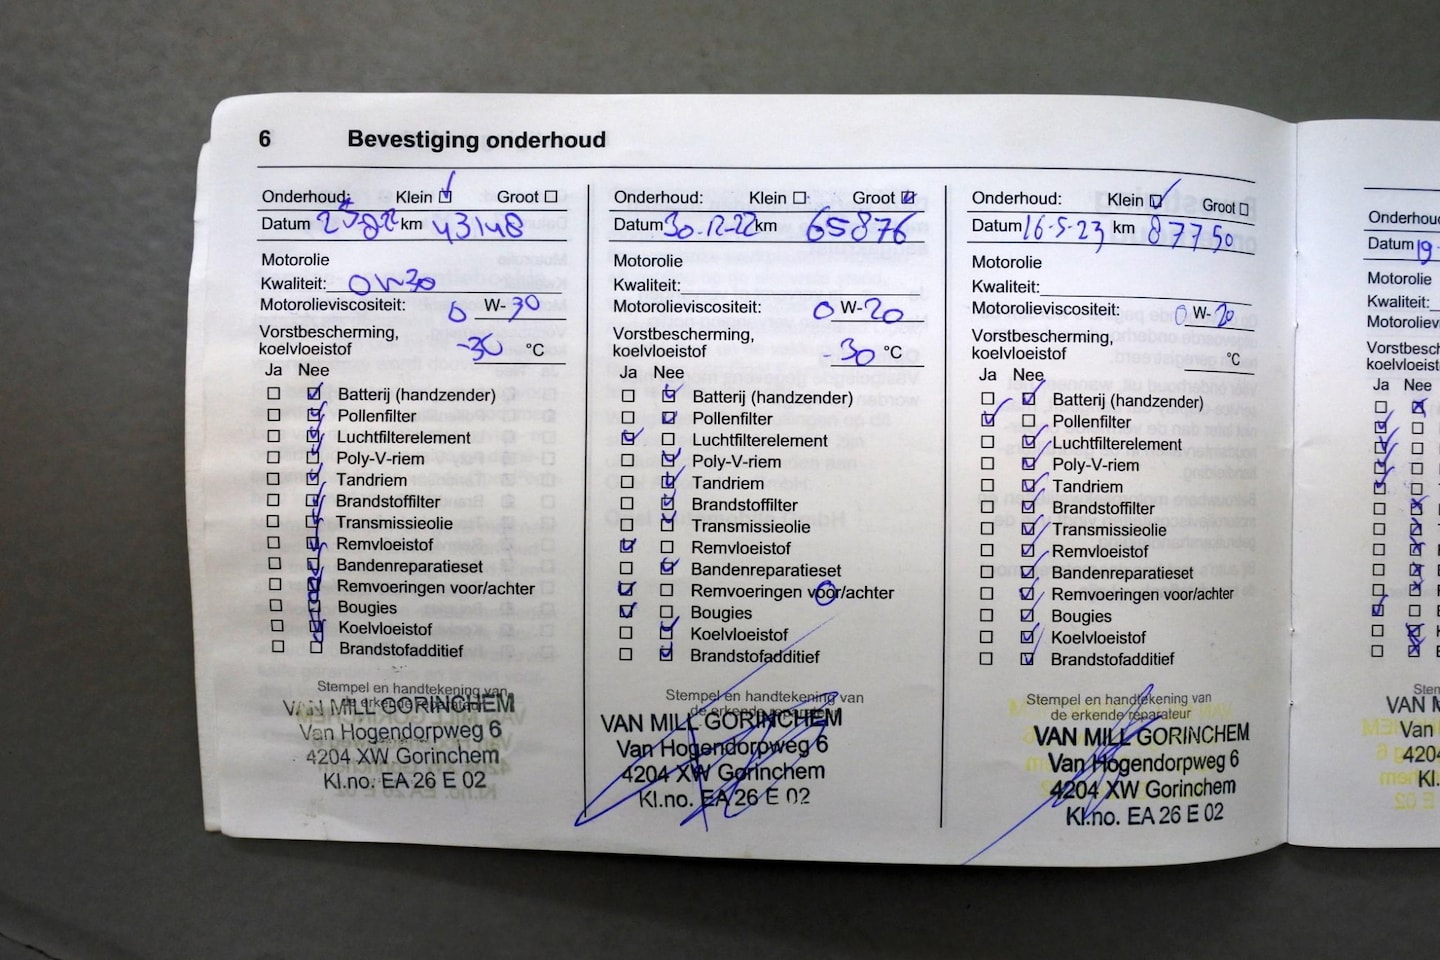 6 Bevestiging onderhoud
Onderhoud: Klein Groot
Datum km 43148
Motorolie
Kwaliteit: 0W30
Motorolieviscositeit: 0 W-30
Vorstbescherming,
koelvloeistof -30 °C
Ja Nee
Batterij (handzender)
Pollenfilter
Luchtfilterelement
Poly-V-riem
Tandriem
Brandstoffilter
Transmissieolie
Remvloeistof
Bandenreparatieset
Remvoeringen voor/achter
Bougies
Koelvloeistof
Brandstofadditief
Stempel en handtekening van
de erkende reparateur
VAN MILL GORINCHEM
Van Hogendorpweg 6
4204 XW Gorinchem
Kl.no. EA 26 E 02
Onderhoud: Klein Groot
Datum 30-12-22 km 65876
Motorolie
Kwaliteit:
Motorolieviscositeit: 0 W-20
Vorstbescherming,
koelvloeistof -30 °C
Ja Nee
Batterij (handzender)
Pollenfilter
Luchtfilterelement
Poly-V-riem
Tandriem
Brandstoffilter
Transmissieolie
Remvloeistof
Bandenreparatieset
Remvoeringen voor/achter
Bougies
Koelvloeistof
Brandstofadditief
Stempel en handtekening van
de erkende reparateur
VAN MILL GORINCHEM
Van Hogendorpweg 6
4204 XW Gorinchem
Kl.no. EA 26 E 02
Onderhoud: Klein Groot
Datum 16-5-23 km 87750
Motorolie
Kwaliteit:
Motorolieviscositeit: 0 W-20
Vorstbescherming,
koelvloeistof °C
Ja Nee
Batterij (handzender)
Pollenfilter
Luchtfilterelement
Poly-V-riem
Tandriem
Brandstoffilter
Transmissieolie
Remvloeistof
Bandenreparatieset
Remvoeringen voor/achter
Bougies
Koelvloeistof
Brandstofadditief
Stempel en handtekening van
de erkende reparateur
VAN MILL GORINCHEM
Van Hogendorpweg 6
4204 XW Gorinchem
Kl.no. EA 26 E 02
Datum 19-
Motorolie
Kwaliteit:
Ja Nee
VAN
Van